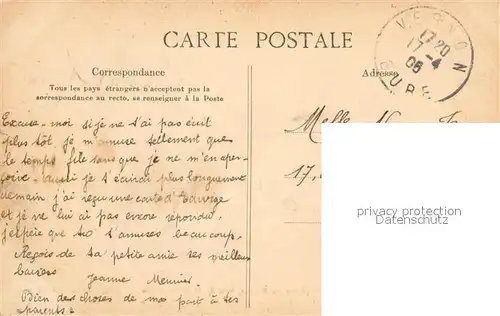 CARTE POSTALE
Correspondance
Tous les pays étrangers n'acceptent pas la
correspondance au recto, se renseigner à la Poste
Adresse
VERNON
17 20
17 -4
05
EURE
Excuse-moi si je ne t'ai pas écrit
plus tôt je m'amuse tellement que
le temps file sans que je ne m'en aper-
çoive aussi je t'écrirai plus longuement
demain j'ai reçu une carte d'
et je ne lui ai pas encore répondu,
j'espère que tu t'amuses beaucoup.
Reçois de ta petite amie ses meilleurs
baisers
Jeanne Meunier
Bien des choses de ma part à tes
parents.
Melle
17,
privacy protection
Datenschutz